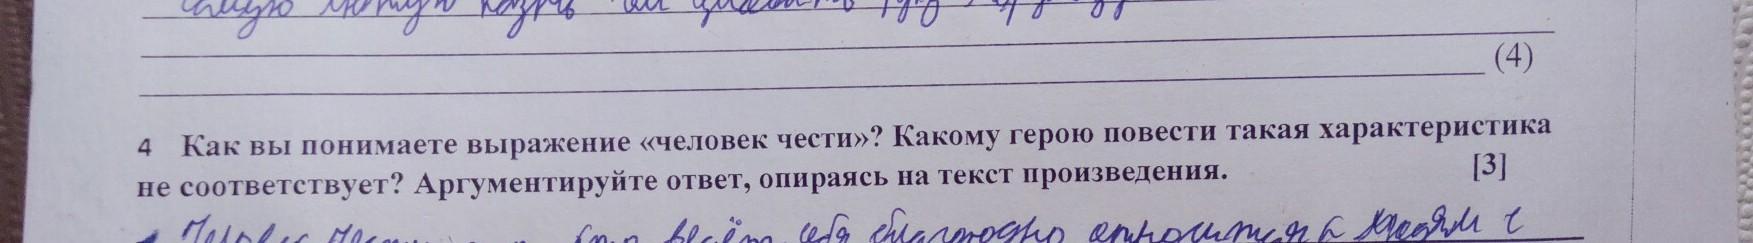 самую лютую казнь
(4)
4 Как вы понимаете выражение «человек чести»? Какому герою повести такая характеристика
не соответствует? Аргументируйте ответ, опираясь на текст произведения. [3]
Человек ведёт себя благородно относится к людям с